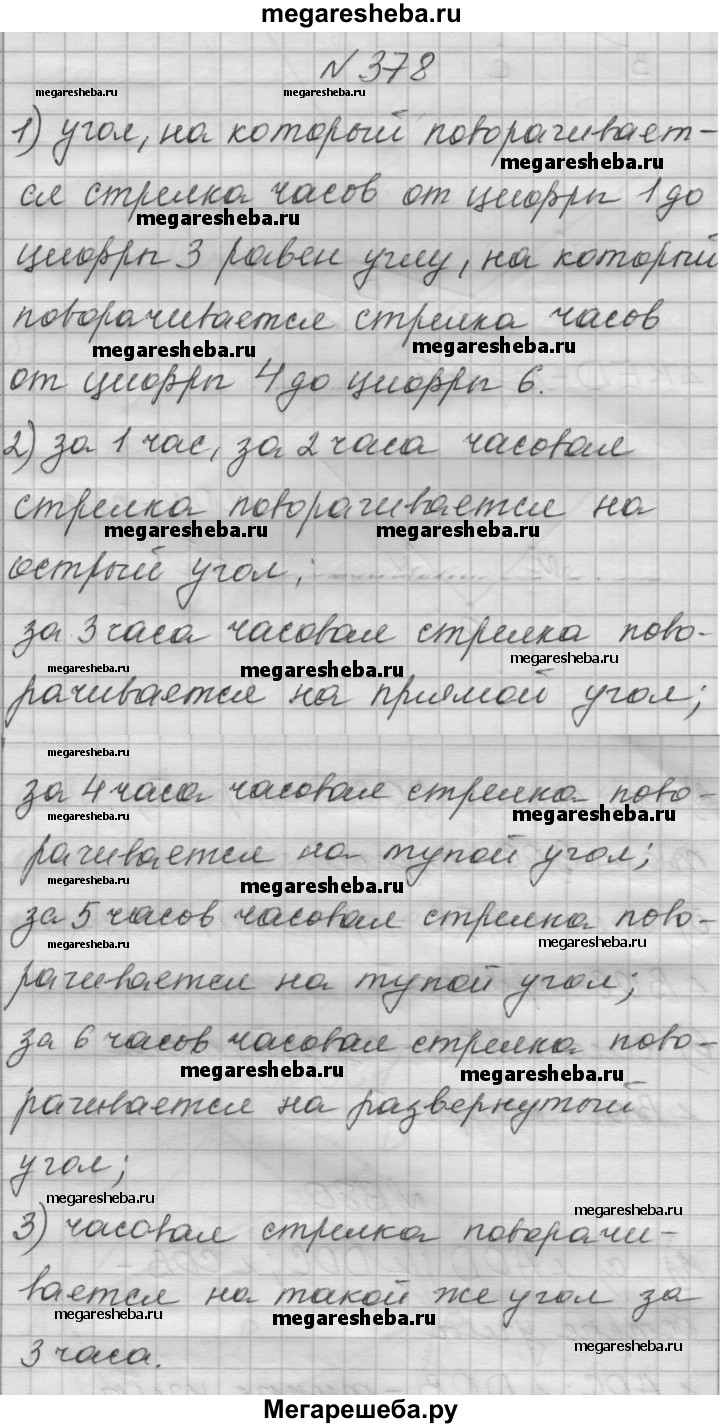 megaresheba.ru
№ 378
megaresheba.ru megaresheba.ru
1) угол, на который поворачивает-
megaresheba.ru
ся стрелка часов от цифры 1 до
megaresheba.ru
цифры 3 равен углу, на который
поворачивается стрелка часов
megaresheba.ru megaresheba.ru
от цифры 4 до цифры 6.
2) за 1 час, за 2 часа часовая
стрелка поворачивается на
megaresheba.ru megaresheba.ru
острый угол;
за 3 часа часовая стрелка пово-
megaresheba.ru megaresheba.ru megaresheba.ru
рачивается на прямой угол;
megaresheba.ru
за 4 часа часовая стрелка пово-
megaresheba.ru megaresheba.ru
рачивается на тупой угол;
megaresheba.ru megaresheba.ru
за 5 часов часовая стрелка пово-
megaresheba.ru megaresheba.ru
рачивается на тупой угол;
за 6 часов часовая стрелка пово-
megaresheba.ru megaresheba.ru
рачивается на развернутый
угол;
megaresheba.ru megaresheba.ru
3) часовая стрелка поворачи-
вается на такой же угол за
megaresheba.ru megaresheba.ru
3 часа.
megaresheba.ru
Мегарешеба.ру